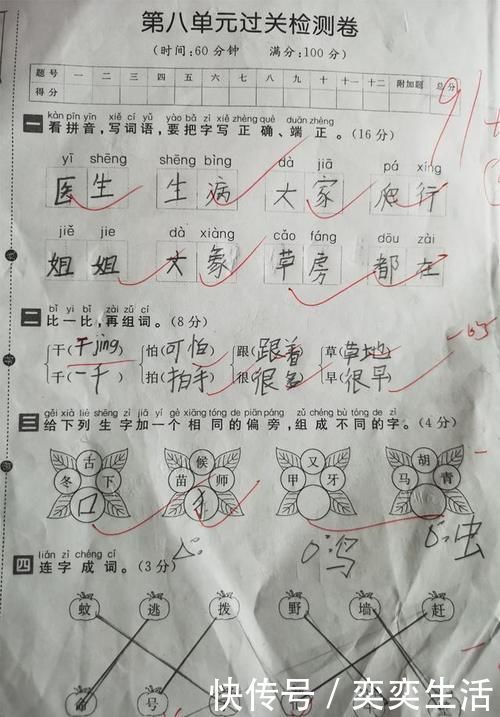 第八单元过关检测卷
(时间:60分钟 满分:100分)
题号 一 二 三 四 五 六 七 八 九 十 十一 十二 附加题 总分
得分
91
kàn pīn yīn xiě cí yǔ yào bǎ zì xiě zhèng què duān zhèng
一 看拼音,写词语,要把字写正确、端正。(16分)
yī shēng shēng bìng dà jiā pá xíng
医生 生病 大家 爬行
jiě jie dà xiàng cǎo fáng dōu zài
姐姐 大象 草房 都在
bǐ yi bǐ zài zǔ cí
二 比一比,再组词。(8分)
干(干jing) 怕(可怕) 跟(跟着) 草(草地)
千(一千) 拍(拍手) 很(很多) 早(很早)
gěi xià liè shēng zì jiā yí gè xiāng tóng de piān páng zǔ chéng bù tóng de zì
三 给下列生字加一个相同的偏旁,组成不同的字。(4分)
舌 候 又 胡
冬 下 苗 师 甲 牙 马 青
口 犭
鸟 虫
lián zì chéng cí
四 连字成词。(3分)
蚊 逃 拨 野 墙 赶
命 号
快传号 / 奕奕生活